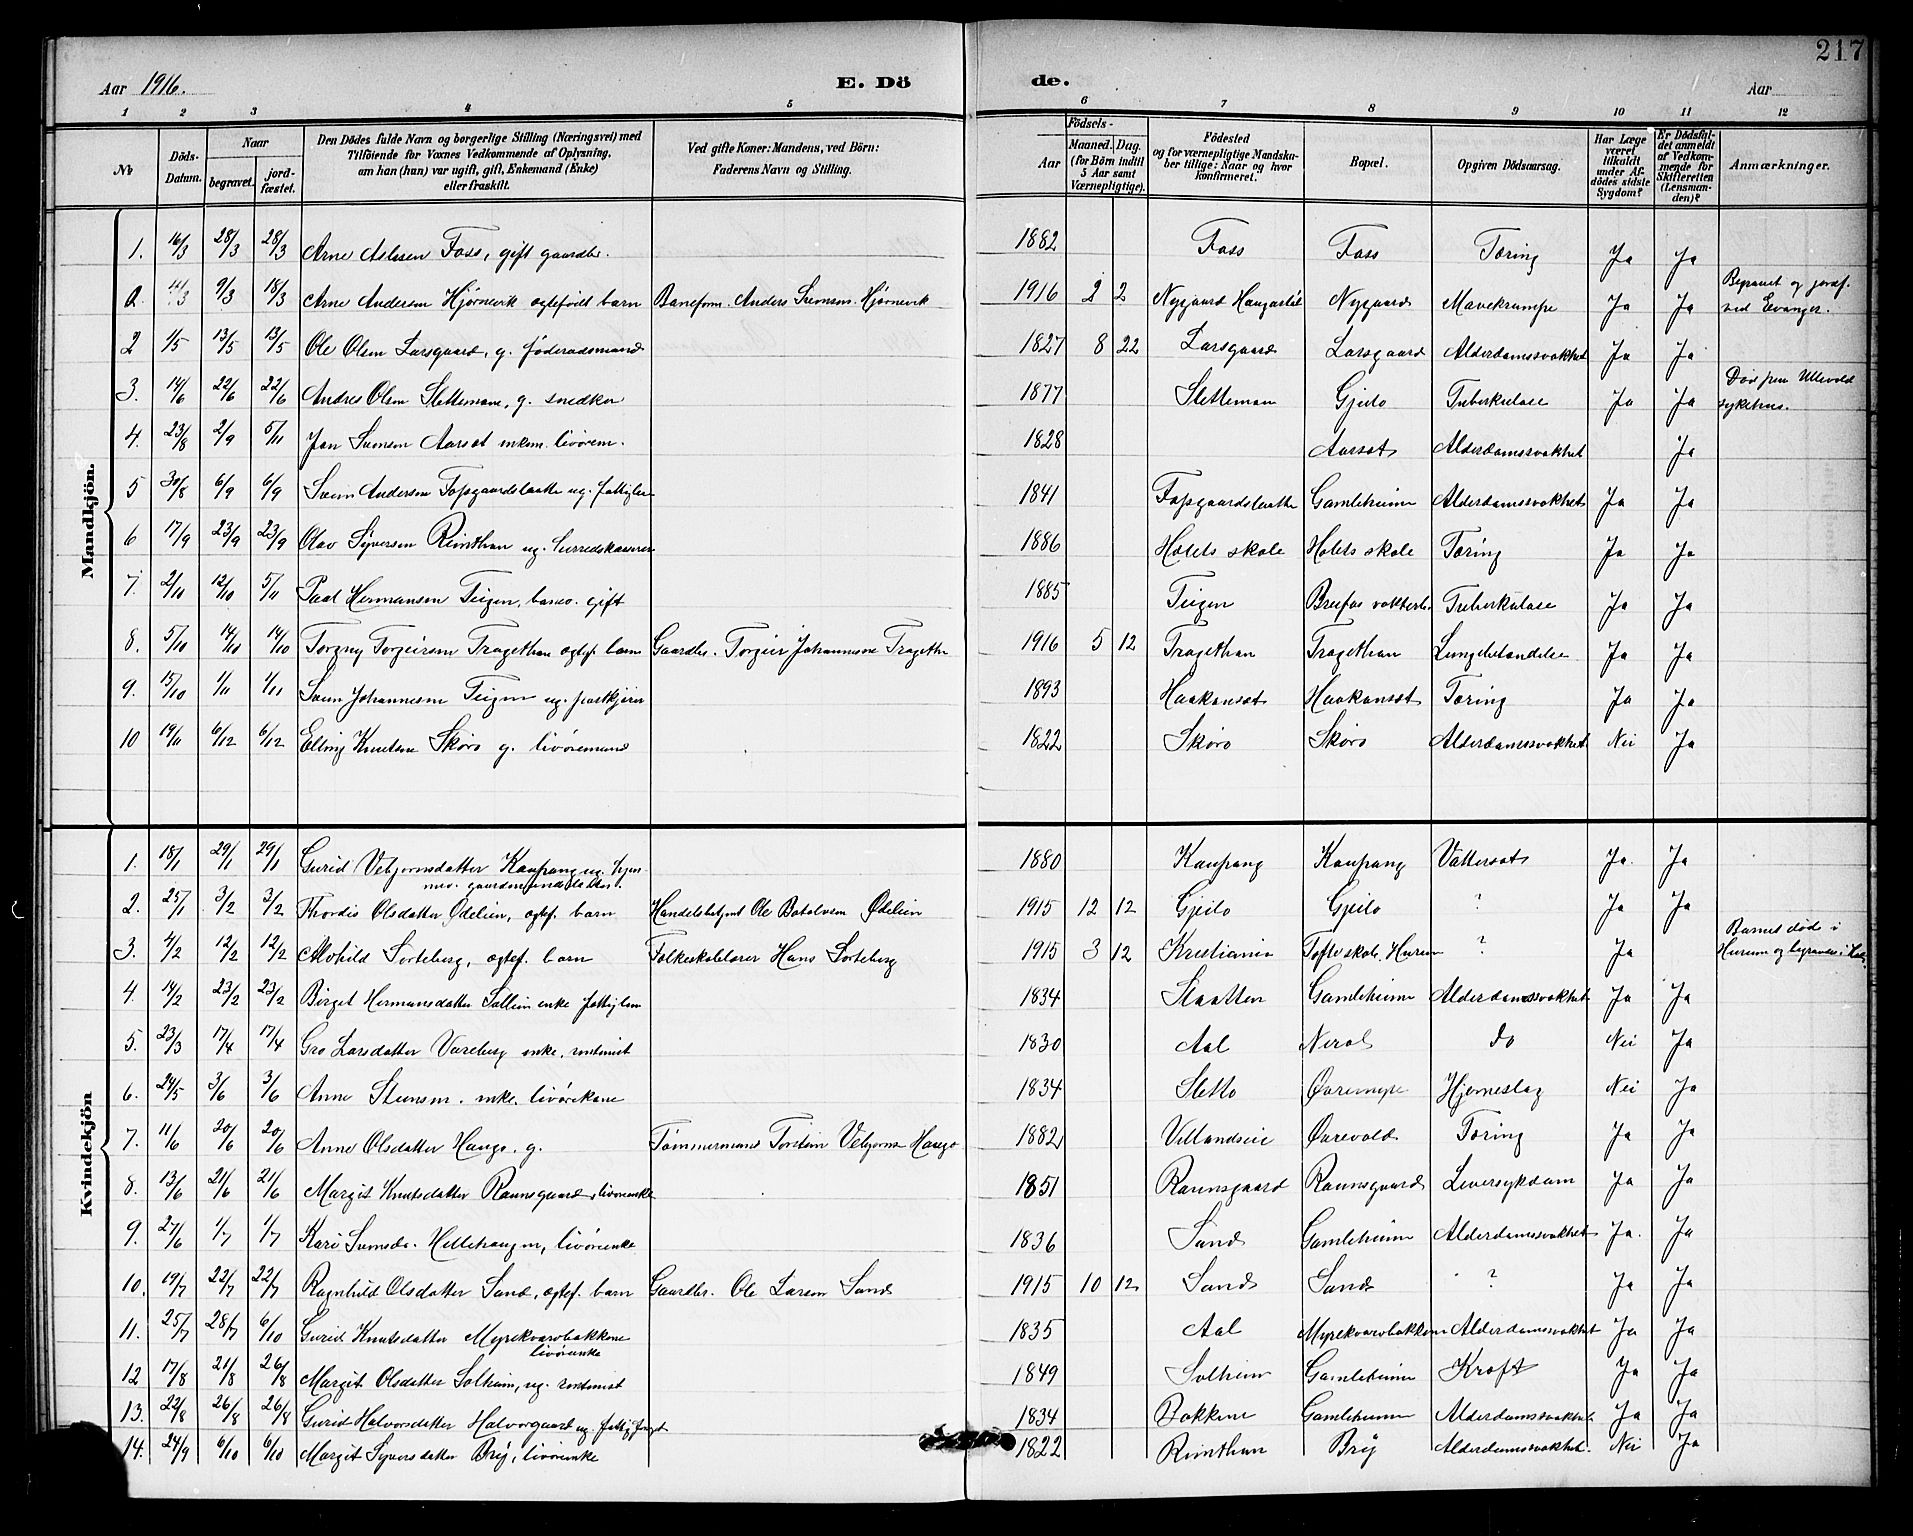 217
Aar 1916. E. Dö de. Aar
1 2 3 4 5 6 7 8 9 10 11 12
№ Döds-Datum. Naar begravet. jordfæstet. Den Dödes fulde Navn og borgerlige Stilling (Næringsvei) med Tilföiende for Voxnes Vedkommende af Oplysning, om han (hun) var ugift, gift, Enkemand (Enke) eller fraskilt. Ved gifte Koner: Mandens, ved Börn: Faderens Navn og Stilling. Födsels- Aar Maaned. Dag. (for Börn indtil 5 Aar samt Værnepligtige). Födested og for værnepligtige Mandskaber tillige: Naar og hvor konfirmeret. Bopæl. Opgiven Dödsaarsag. Har Læge været tilkaldt under Afdödes sidste Sygdom? Er Dödsfaldet anmeldt af Vedkommende for Skifteretten (Lensmanden)? Anmærkninger.
Mandkjön.
1. 16/3 28/3 28/3 Arne Aslesen Foss, gift gaardbr. 1882 Foss Foss Tæring Ja Ja
a. 4/3 9/3 18/3 Arne Andersen Hjørnevik ægtefødt barn Baneform. Anders Svensen Hjørnevik 1916 2 2 Nygaard Haugastøl Nygaard Mavekrampe Ja Ja Begravet og jordf. ved Evanger.
2 1/5 13/5 13/5 Ole Olsen Larsgaard, g. føderaadsmand 1827 8 22 Larsgaard Larsgaard Alderdomssvakhet Ja Ja
3. 14/6 22/6 22/6 Andres Olsen Slettemoen, g. snedker 1877 Slettemoen Gjeilo Tuberkulose Ja Ja Død paa Ullevold sykehus.
4. 23/8 2/9 5/11 Jon Svensen Aarset enkem. livørem. 1828 Aarset Alderdomssvakhet Ja
5 30/8 6/9 6/9 Svein Andersen Fopsgaardslaatte ug. fattiglem 1841 Fopsgaardslaatte Gamleheim Alderdomssvakhet Ja Ja
6 17/9 23/9 23/9 Olav Syversen Reinthon ug. herredskasserer 1886 Holets skole Holets skole Tæring Ja Ja
7. 2/10 12/10 5/11 Paal Hermansen Teigen, banev. gift 1885 Teigen Breifos vokterb. Tuberkulose Ja Ja
8. 5/10 14/10 14/10 Torgny Torgeirsen Tragethon ægtef. barn Gaardbr. Torgeir Johannesen Tragethon 1916 5 12 Tragethon Tragethon Lungebetændelse Ja Ja
9. 15/10 1/11 1/11 Svein Johannesen Teigen ug. postkjører 1893 Haakonset Haakonset Tæring Ja Ja
10 19/11 6/12 6/12 Elling Knutsen Skøro g. livøremand 1822 Skøro Skøro Alderdomssvakhet Nei Ja
Kvindekjön
1. 18/1 29/1 29/1 Gurid Vebjørnsdatter Kaupang ug. hjemmev. gaardmandsdatter. 1880 Kaupang Kaupang Vattersot Ja. Ja
2. 25/1 3/2 3/2 Thordis Olsdatter Ødelien, ægtef. barn Handelsbetjent Ole Botolvsen Ødelien 1915 12 12 Gjeilo Gjeilo ? Ja Ja
3. 4/2 12/2 12/2 Alvhild Sorteberg, ægtef. barn Folkeskolelærer Hans Sorteberg 1915 3 12 Kristiania Tofte skole, Hurum ? Ja Barnet døde i Hurum og begravdes i Hol.
4. 14/2 23/2 23/2 Birget Hermansdatter Sollien enke fattiglem 1834 Slaatten Gamleheim Alderdomssvakhet Ja Ja
5. 23/3 17/4 17/4 Gro Larsdatter Vareberg enke, rentenist 1830 Aal Neral do Nei Ja
6. 24/5 3/6 3/6 Anne Steinsen. enke. livørekone 1834 Sletto Øvremyr Hjerneslag Nei Ja
7. 11/6 20/6 20/6 Anne Olsdatter Haugo. g. Tømmermand Torstein Vebjørns. Haugo 1882 Villandseie Ørevold Tæring Ja Ja
8. 13/6 21/6 21/6 Margit Knutsdatter Raunsgaard, livøreenke 1851 Raunsgaard Raunsgaard Leversykdom Ja Ja
9. 27/6 1/7 1/7 Kari Svensda. Hellehaugen, livøreenke 1836 Sand Gamleheim Alderdomssvakhet Ja. Ja
10. 19/7 22/7 22/7 Ragnhild Olsdatter Sand, ægtef. barn Gaardbr. Ole Larsen Sand 1915 10 12 Sand Sand ? Ja Ja
11. 25/7 28/7 6/10 Gurid Knutsdatter Myrekvarvbakkene livøreenke 1835 Aal Myrekvarvbakkene Alderdomssvakhet Ja Ja
12 17/8 21/8 26/8 Margit Olsdatter Solheim, ug. rentenist 1849 Solheim Gamleheim Kræft Ja Ja
13. 22/8 26/8 26/8 Gurid Halvorsdatter Halvorgaard ug. fattigforsørget 1834 Bakkene Gamleheimen Alderdomssvakhet Ja Ja
14. 24/9 6/10 6/10 Margit Syversdatter Brøy, livøreenke 1822 Reinthon Brøy Alderdomssvakhet. Nei Ja